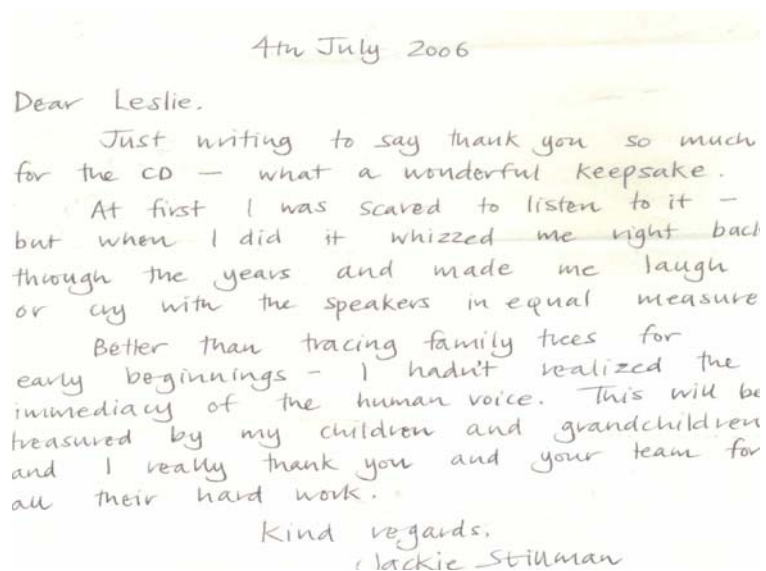 4th July 2006
Dear Leslie.
Just writing to say thank you so much
for the CD — what a wonderful keepsake.
At first I was scared to listen to it –
but when I did it whizzed me right back
through the years and made me laugh
or cry with the speakers in equal measure
Better than tracing family trees for
early beginnings – I hadn't realized the
immediacy of the human voice. This will be
treasured by my children and grandchildren
and I really thank you and your team for
all their hard work.
Kind regards.
Jackie Stillman